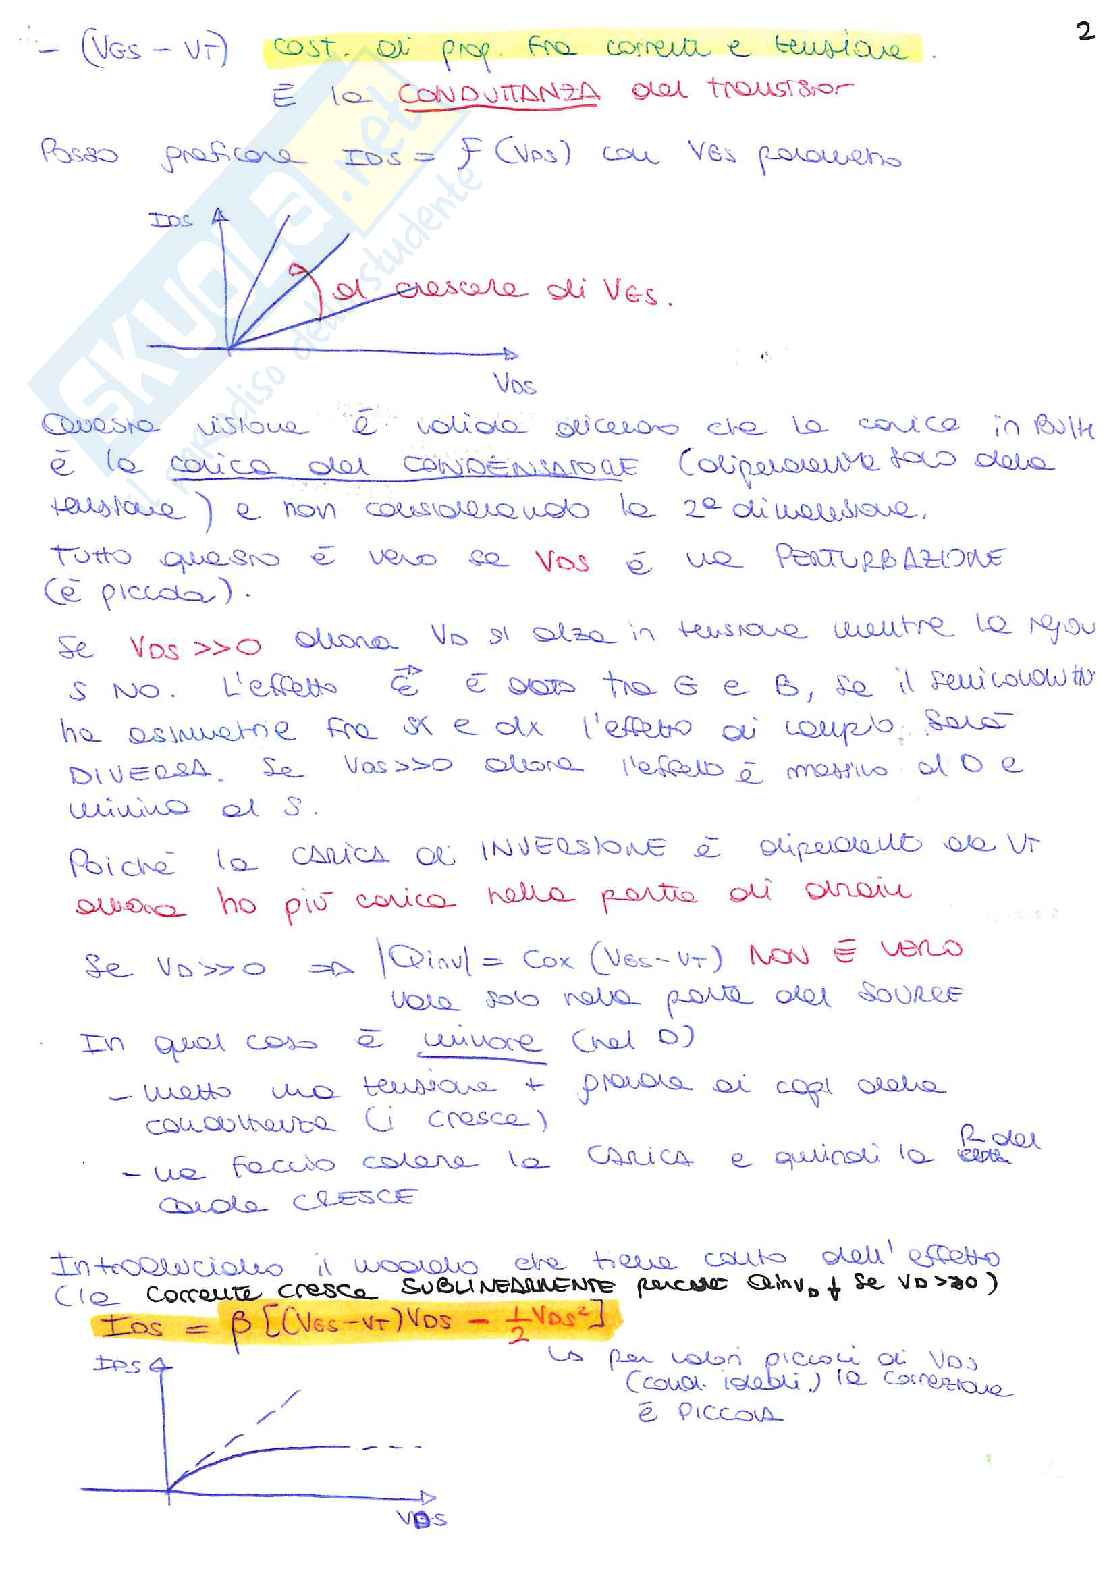 2
- (VGS - VT) cost. di prop. fra corrente e tensione.
È la CONDUTTANZA del transistor
Posso graficare IDS = f (VDS) con VGS parametro
IDS
al crescere di VGS.
VDS
Questa visione è valida dicendo che la carica in Bulk
è la carica del CONDENSATORE (dipendente solo dalla
tensione) e non considerando la 2ª dimensione.
Tutto questo è vero se VDS è una PERTURBAZIONE
(è piccola).
Se VDS >> 0 allora VD si alza in tensione mentre la region
S NO. L'effetto è dato tra G e B, se il semicondutt
ha asimmetrie fra sx e dx l'effetto di campo sarà
DIVERSA. Se VDS >> 0 allora l'effetto è massimo al D e
minimo al S.
Poiché la CARICA di INVERSIONE è dipendente da VT
allora ho più carica nella parte di drain
Se VD >> 0 ⇒ |Qinv| = Cox (VGS - VT) NON È VERO
vale solo nella parte del SOURCE
In quel caso è minore (nel D)
- metto una tensione + grande ai capi della
conduttanza (i cresce)
- ne faccio calare la CARICA e quindi la R del
canale CRESCE
Introduciamo il modello che tiene conto dell'effetto
(la corrente cresce SUBLINEARMENTE perché QinvD ↓ se VD >> 0)
IDS = β [(VGS - VT) VDS - 1/2 VDS²]
↳ per valori piccoli di VDS
(cond. ideali) la correzione
è PICCOLA
IDS
VDS
SKUOLA.net
il paradiso dello studente